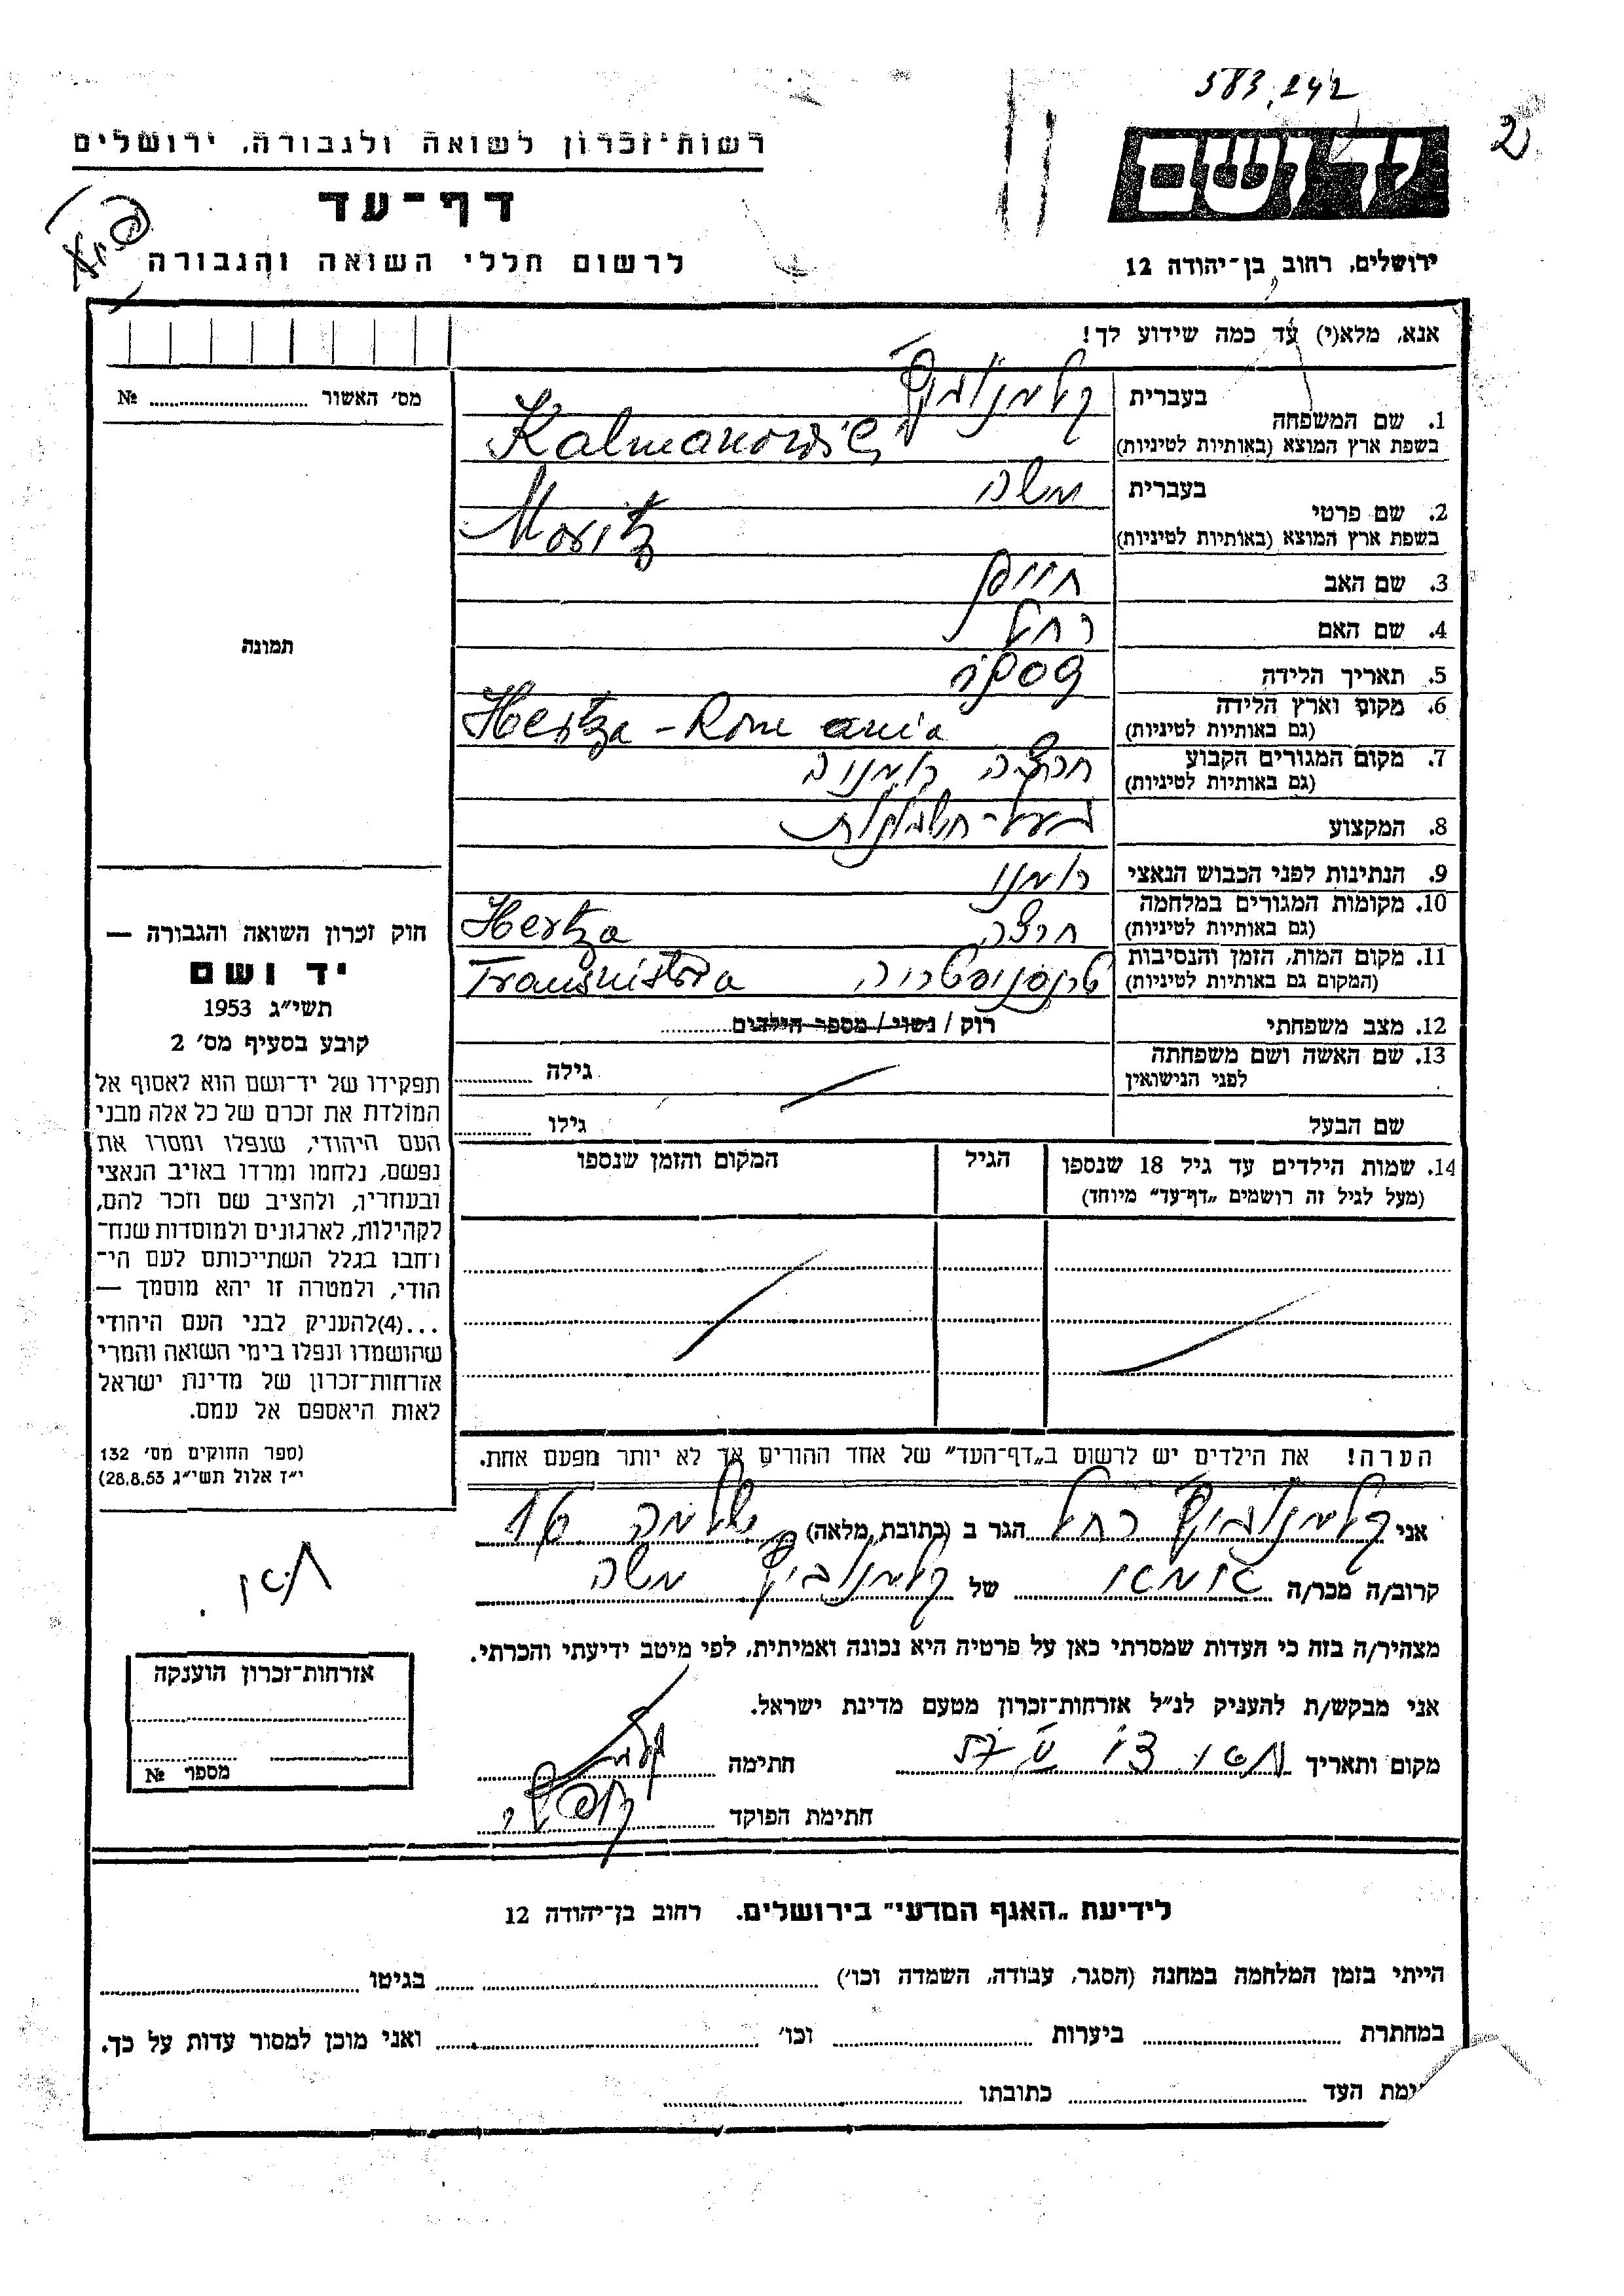 583,242
2
יד ושם
רשות־זכרון לשואה ולגבורה, ירושלים
דף־עד
לרשום חללי השואה והגבורה
ירושלים, רחוב בן־יהודה 12
אנא, מלא(י) עד כמה שידוע לך!
מס׳ האשור № 
תמונה
1. שם המשפחה
בעברית קלמנוביץ
בשפת ארץ המוצא (באותיות לטיניות) Kalmanowiţi
2. שם פרטי
בעברית משה
בשפת ארץ המוצא (באותיות לטיניות) Moritz
3. שם האב חיים
4. שם האם רחל
5. תאריך הלידה
6. מקום וארץ הלידה
(גם באותיות לטיניות) Hertza - Romania
7. מקום המגורים הקבוע
(גם באותיות לטיניות) חרצה רומניה
8. המקצוע
9. הנתינות לפני הכבוש הנאצי רומני
10. מקומות המגורים במלחמה
(גם באותיות לטיניות) חרצה Hertza
11. מקום המות, הזמן והנסיבות
(המקום גם באותיות לטיניות) טרנסניסטריה Transnistria
12. מצב משפחתי רוק / נשוי / מספר הילדים
13. שם האשה ושם משפחתה
לפני הנישואין גילה
שם הבעל גילו
14. שמות הילדים עד גיל 18 שנספו הגיל המקום והזמן שנספו
(מעל לגיל זה רושמים „דף־עד” מיוחד)
הערה! את הילדים יש לרשום ב„דף־העד” של אחד ההורים אך לא יותר מפעם אחת.
חוק זכרון השואה והגבורה —
יד ושם
תשי״ג 1953
קובע בסעיף מס׳ 2
תפקידו של יד־ושם הוא לאסוף אל
המולדת את זכרם של כל אלה מבני
העם היהודי, שנפלו ומסרו את
נפשם, נלחמו ומרדו באויב הנאצי
ובעוזריו, ולהציב שם וזכר להם,
לקהילות, לארגונים ולמוסדות שנח־
רחבו בגלל השתייכותם לעם הי־
הודי, ולמטרה זו יהא מוסמך —
...(4)להעניק לבני העם היהודי
שהושמדו ונפלו בימי השואה והמרי
אזרחות־זכרון של מדינת ישראל
לאות היאספם אל עמם.
(ספר החוקים מס׳ 132
י״ז אלול תשי״ג 28.8.53)
אני קלמנוביץ רחל הגר ב (כתובת מלאה)
קרוב/ה מכר/ה של קלמנוביץ משה
מצהיר/ה בזה כי העדות שמסרתי כאן על פרטיה היא נכונה ואמיתית, לפי מיטב ידיעתי והכרתי.
אני מבקש/ת להעניק לנ״ל אזרחות־זכרון מטעם מדינת ישראל.
מקום ותאריך חתימה
חתימת הפוקד
אזרחות־זכרון הוענקה
מספר №
לידיעת „האגף המדעי” בירושלים. רחוב בן־יהודה 12
הייתי בזמן המלחמה במחנה (הסגר, עבודה, השמדה וכו׳) בגיטו
במחתרת ביערות וכו׳ ואני מוכן למסור עדות על כך.
ימת העד כתובתו